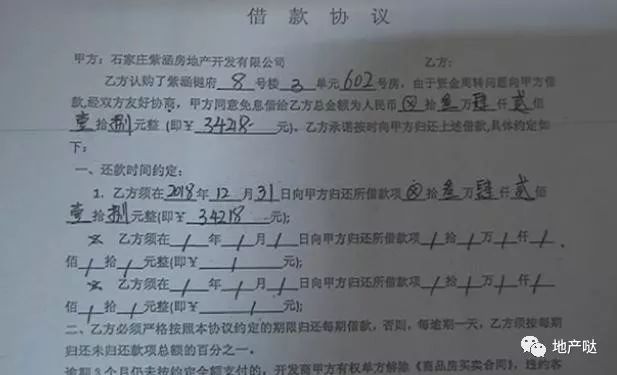 借款协议
甲方：石家庄紫涵房地产开发有限公司 乙方：
乙方认购了紫涵樾府 8 号楼 3 单元 602 号房，由于资金周转问题向甲方借
款，经双方友好协商，甲方同意免息借给乙方总金额为人民币 ⊗ 拾 叁 万 肆 仟 贰 佰
壹 拾 捌 元整（即￥ 34218- 元）。乙方承诺按时向甲方归还上述借款，具体约定如
下：
一、还款时间约定：
1、乙方须在 2018 年 12 月 31 日向甲方归还所借款项 ⊗ 拾 叁 万 肆 仟 贰 佰
壹 拾 捌 元整(即￥ 34218 元);
2、乙方须在 / 年 / 月 / 日向甲方归还所借款项 / 拾 / 万 / 仟 /
佰 / 拾 / 元整(即￥ / 元);
乙方须在 / 年 / 月 / 日向甲方归还所借款项 / 拾 / 万 / 仟 /
佰 / 拾 / 元整(即￥ / 元);
二、乙方必须严格按照本协议约定的期限归还每期借款，否则，每逾期一天，乙方须按每期
归还未归还款项总额的百分之一。
逾期 3 个月仍未按约定全额支付的，开发商甲方有权单方解除《商品房买卖合同》，违约客
地产哒